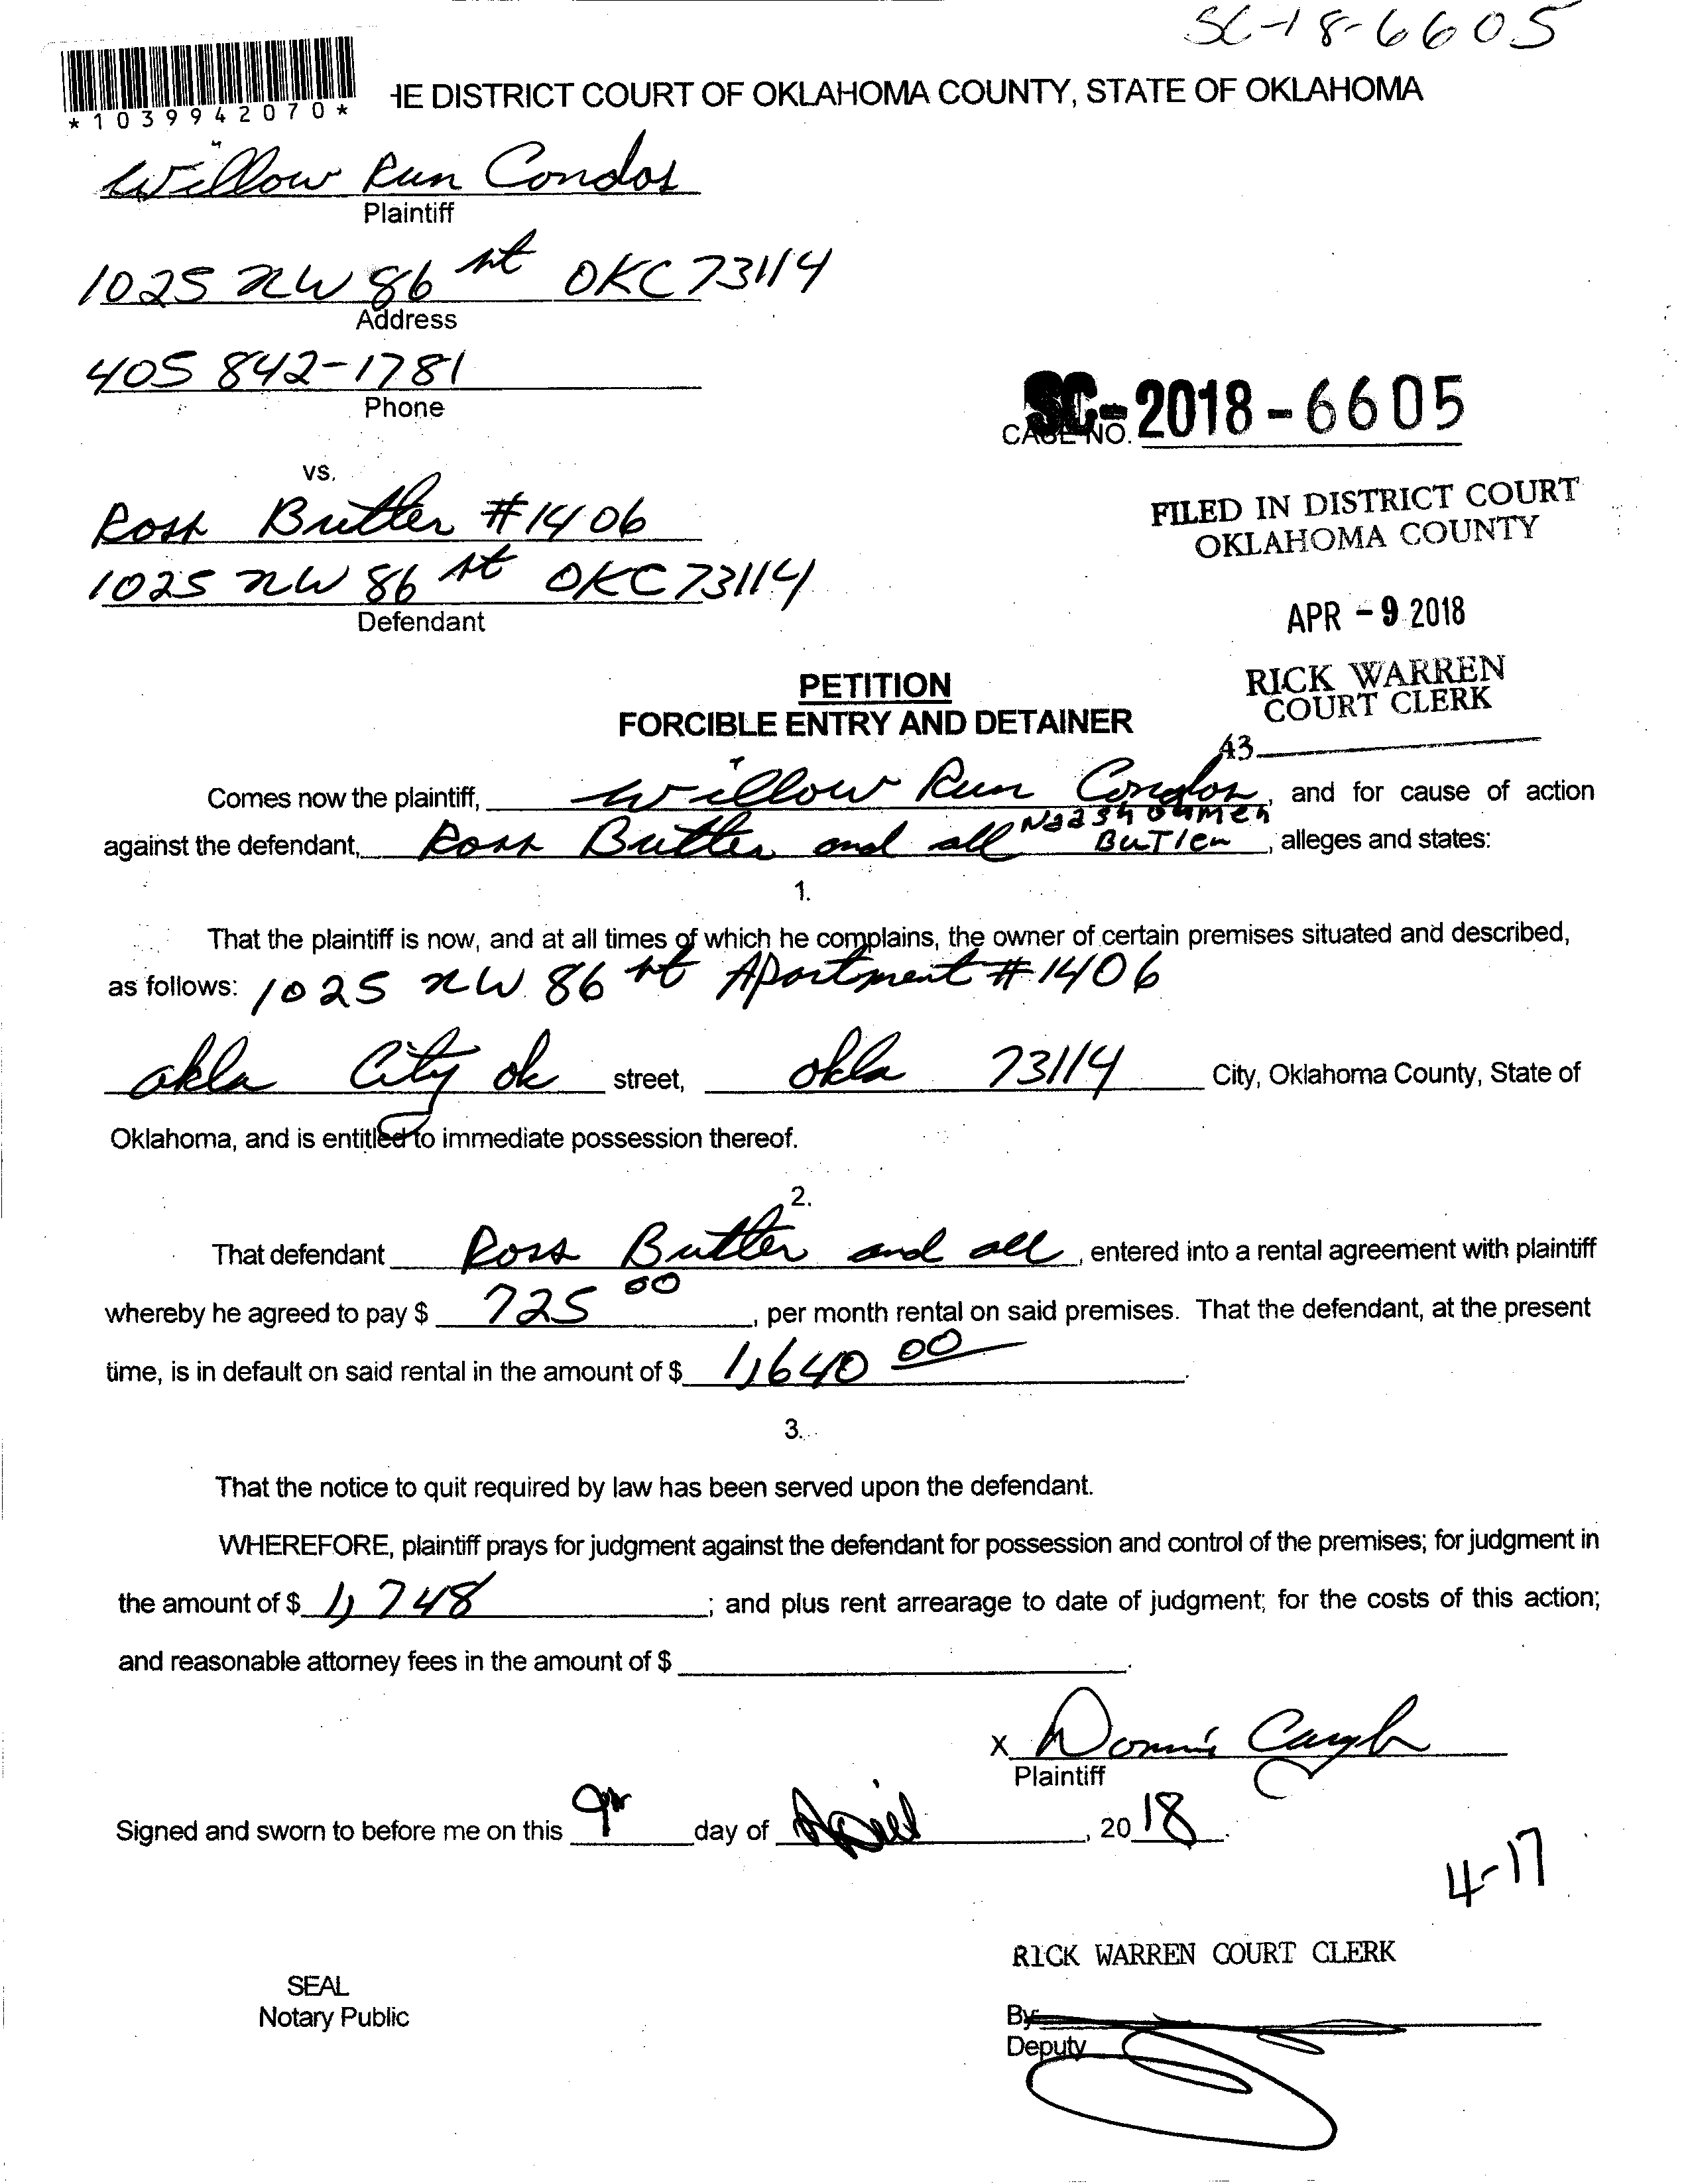 SC-18-6605
*1039942070*
HE DISTRICT COURT OF OKLAHOMA COUNTY, STATE OF OKLAHOMA
Willow Run Condos
Plaintiff
1025 NW 86 st OKC 73114
Address
405 842-1781
Phone
SC-2018-6605
CASE NO.
vs.
Ross Butler #1406
1025 NW 86 st OKC 73114
Defendant
FILED IN DISTRICT COURT
OKLAHOMA COUNTY
APR -9 2018
RICK WARREN
COURT CLERK
43
PETITION
FORCIBLE ENTRY AND DETAINER
Comes now the plaintiff, Willow Run Condos, and for cause of action
against the defendant, Ross Butler and all Butler, alleges and states:
1.
That the plaintiff is now, and at all times of which he complains, the owner of certain premises situated and described,
as follows: 1025 NW 86 st Apartment #1406
okla City ok street, okla 73114 City, Oklahoma County, State of
Oklahoma, and is entitled to immediate possession thereof.
2.
That defendant Ross Butler and all, entered into a rental agreement with plaintiff
whereby he agreed to pay $ 725 00, per month rental on said premises. That the defendant, at the present
time, is in default on said rental in the amount of $ 1,640 00.
3.
That the notice to quit required by law has been served upon the defendant.
WHEREFORE, plaintiff prays for judgment against the defendant for possession and control of the premises; for judgment in
the amount of $ 1,748; and plus rent arrearage to date of judgment; for the costs of this action;
and reasonable attorney fees in the amount of $.
X Donnis
Plaintiff
Signed and sworn to before me on this 9th day of April, 2018.
4-17
RICK WARREN COURT CLERK
SEAL
Notary Public
By
Deputy